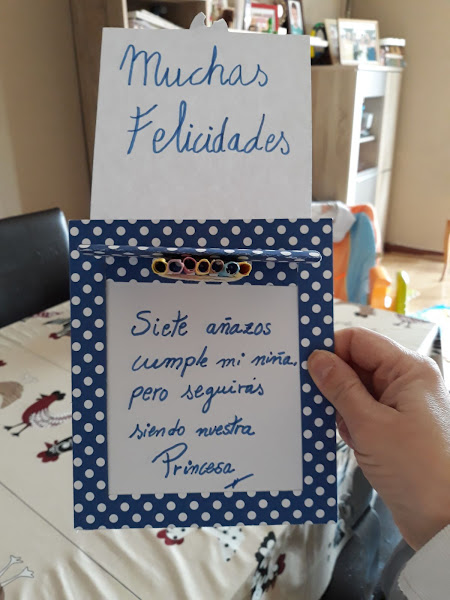 Muchas
Felicidades
Siete añazos
cumple mi niña,
pero seguirás
siendo nuestra
Princesa